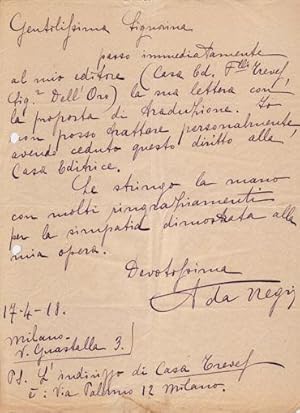 Gentilissima Signorina
passo immediatamente
al mio editore (Casa Ed. F.lli Treves,
Sig.r Dell'Oro) la sua lettera con
la proposta di traduzione. Io
non posso trattare personalmente
avendo ceduto questo diritto alla
Casa Editrice.
Le stringo la mano
con molti ringraziamenti
per la simpatia dimostrata alla
mia opera.
Devotissima
Ada Negri
17-4-18.
Milano.
V. Guastalla 3.
PS. L'indirizzo di Casa Treves
è: Via Palermo 12 Milano.